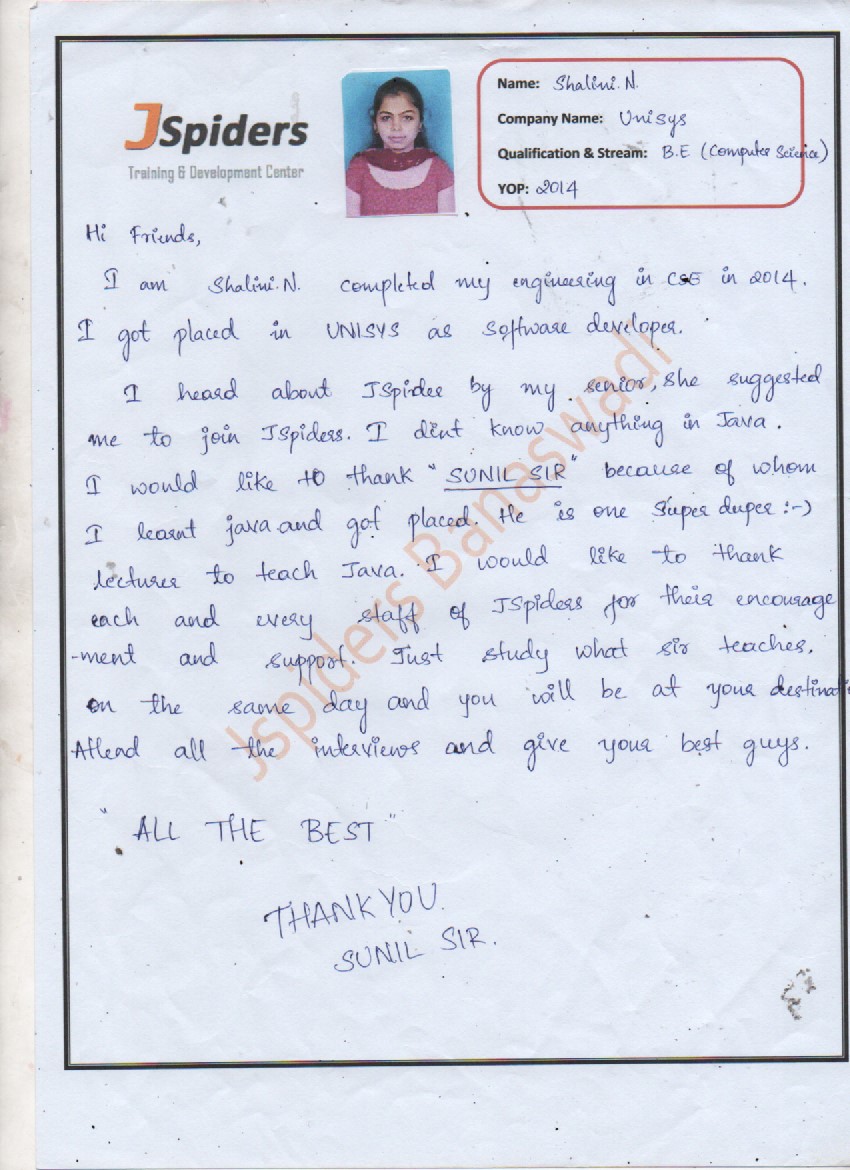 JSpiders
Training & Development Center
Name: Shalini.N.
Company Name: Unisys
Qualification & Stream: B.E (Computer Science)
YOP: 2014
Hi Friends,
I am Shalini.N. completed my engineering in CSE in 2014.
I got placed in UNISYS as software developer.
I heard about JSpider by my senior, she suggested
me to join JSpiders. I dint know anything in Java.
I would like to thank "SUNIL SIR" because of whom
I learnt java and got placed. He is one super duper :-)
lecturer to teach Java. I would like to thank
each and every staff of JSpiders for their encourage
-ment and support. Just study what sir teaches.
on the same day and you will be at your destinati
Attend all the interviews and give your best guys.
"ALL THE BEST"
THANK YOU
SUNIL SIR.
Jspiders Banaswadi